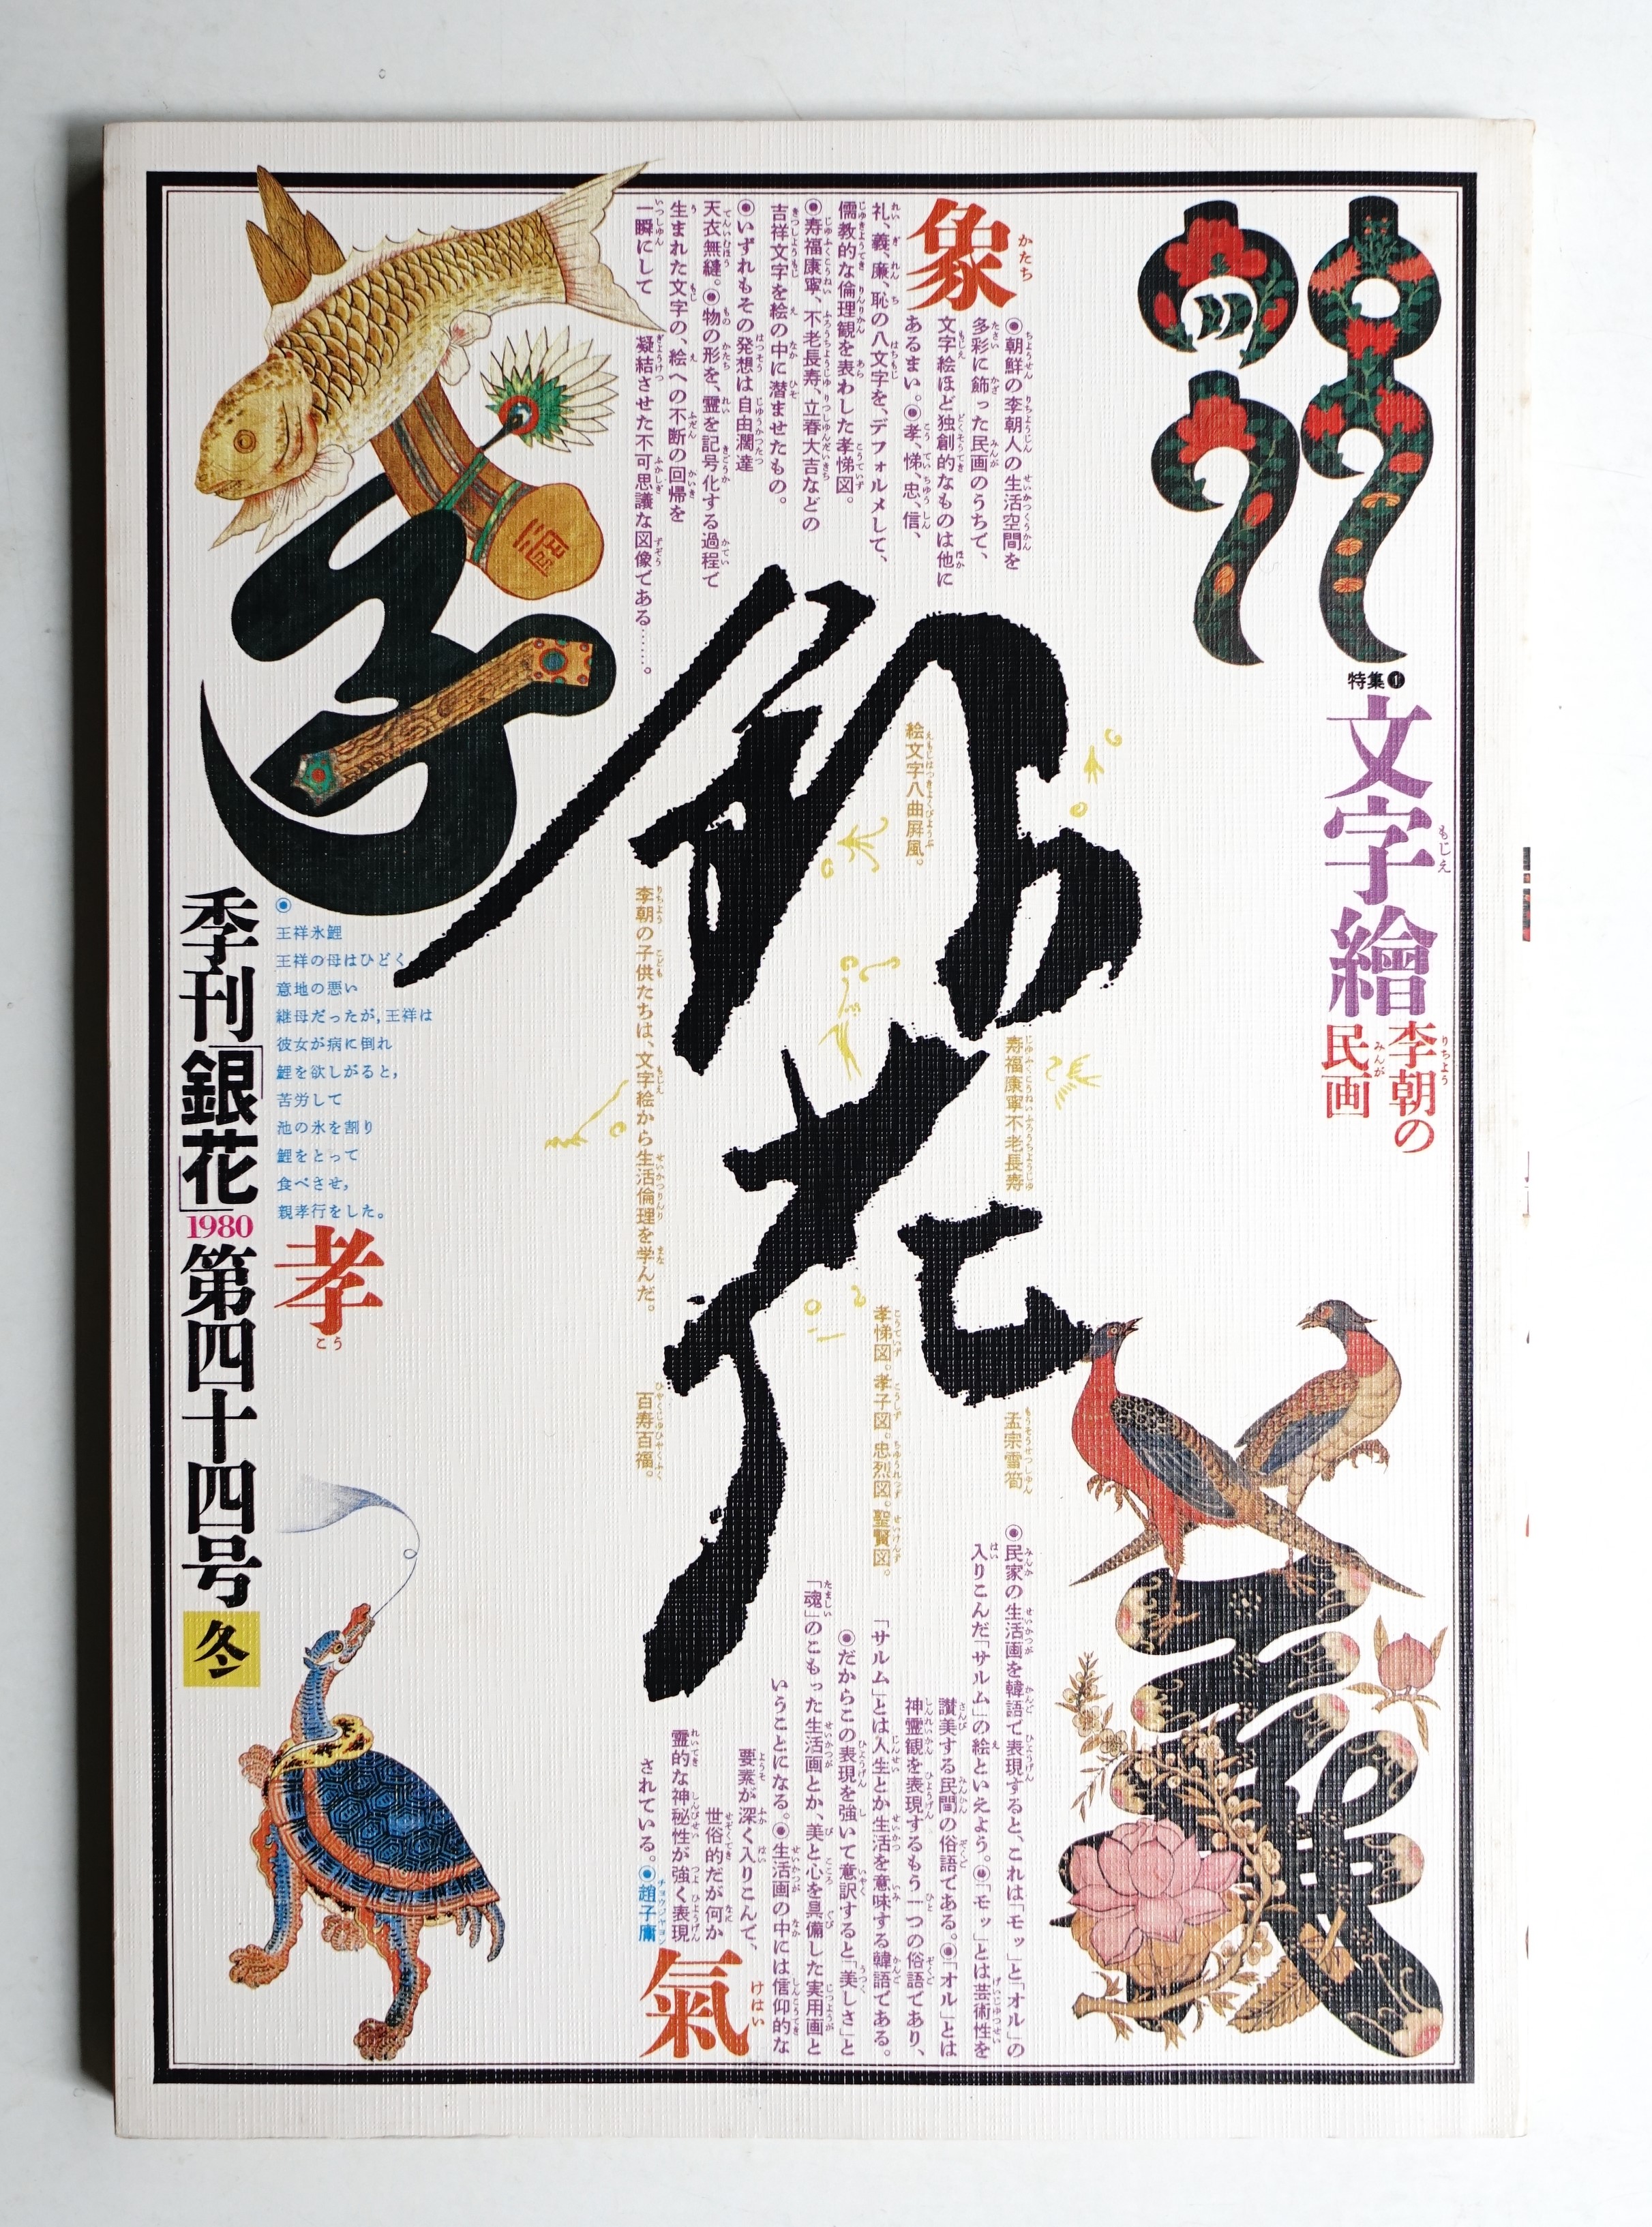 特集❶
文字繪
李朝の
民画
象
◉朝鮮の李朝人の生活空間を
多彩に飾った民画のうちで、
文字絵ほど独創的なものは他に
あるまい。◉孝、悌、忠、信、
礼、義、廉、恥の八文字を、デフォルメして、
儒教的な倫理観を表わした孝悌図。
◉寿福康寧、不老長寿、立春大吉などの
吉祥文字を絵の中に潜ませたもの。
◉いずれもその発想は自由濶達
天衣無縫。◉物の形を、霊を記号化する過程で
生まれた文字の、絵への不断の回帰を
一瞬にして 凝結させた不可思議な図像である……。
銀花
絵文字八曲屛風。
寿福康寧不老長寿
李朝の子供たちは、文字絵から生活倫理を学んだ。
孝悌図。孝子図。忠烈図。聖賢図。
孟宗雪筍
百寿百福。
季刊「銀花」1980第四十四号
冬
◉
王祥氷鯉
王祥の母はひどく
意地の悪い
継母だったが,王祥は
彼女が病に倒れ
鯉を欲しがると,
苦労して
池の氷を割り
鯉をとって
食べさせ,
親孝行をした。
孝
こう
◉民家の生活画を韓語で表現すると、これは「モッ」と「オル」の
入りこんだ「サルム」の絵といえよう。◉「モッ」とは芸術性を
讃美する民間の俗語である。◉「オル」とは
神霊観を表現するもう一つの俗語であり、
「サルム」とは人生とか生活を意味する韓語である。
◉だからこの表現を強いて意訳すると「美しさ」と
「魂」のこもった生活画とか、美と心を具備した実用画と
いうことになる。◉生活画の中には信仰的な
要素が深く入りこんで、
世俗的だが何か
霊的な神秘性が強く表現
されている。◉趙子庸
氣